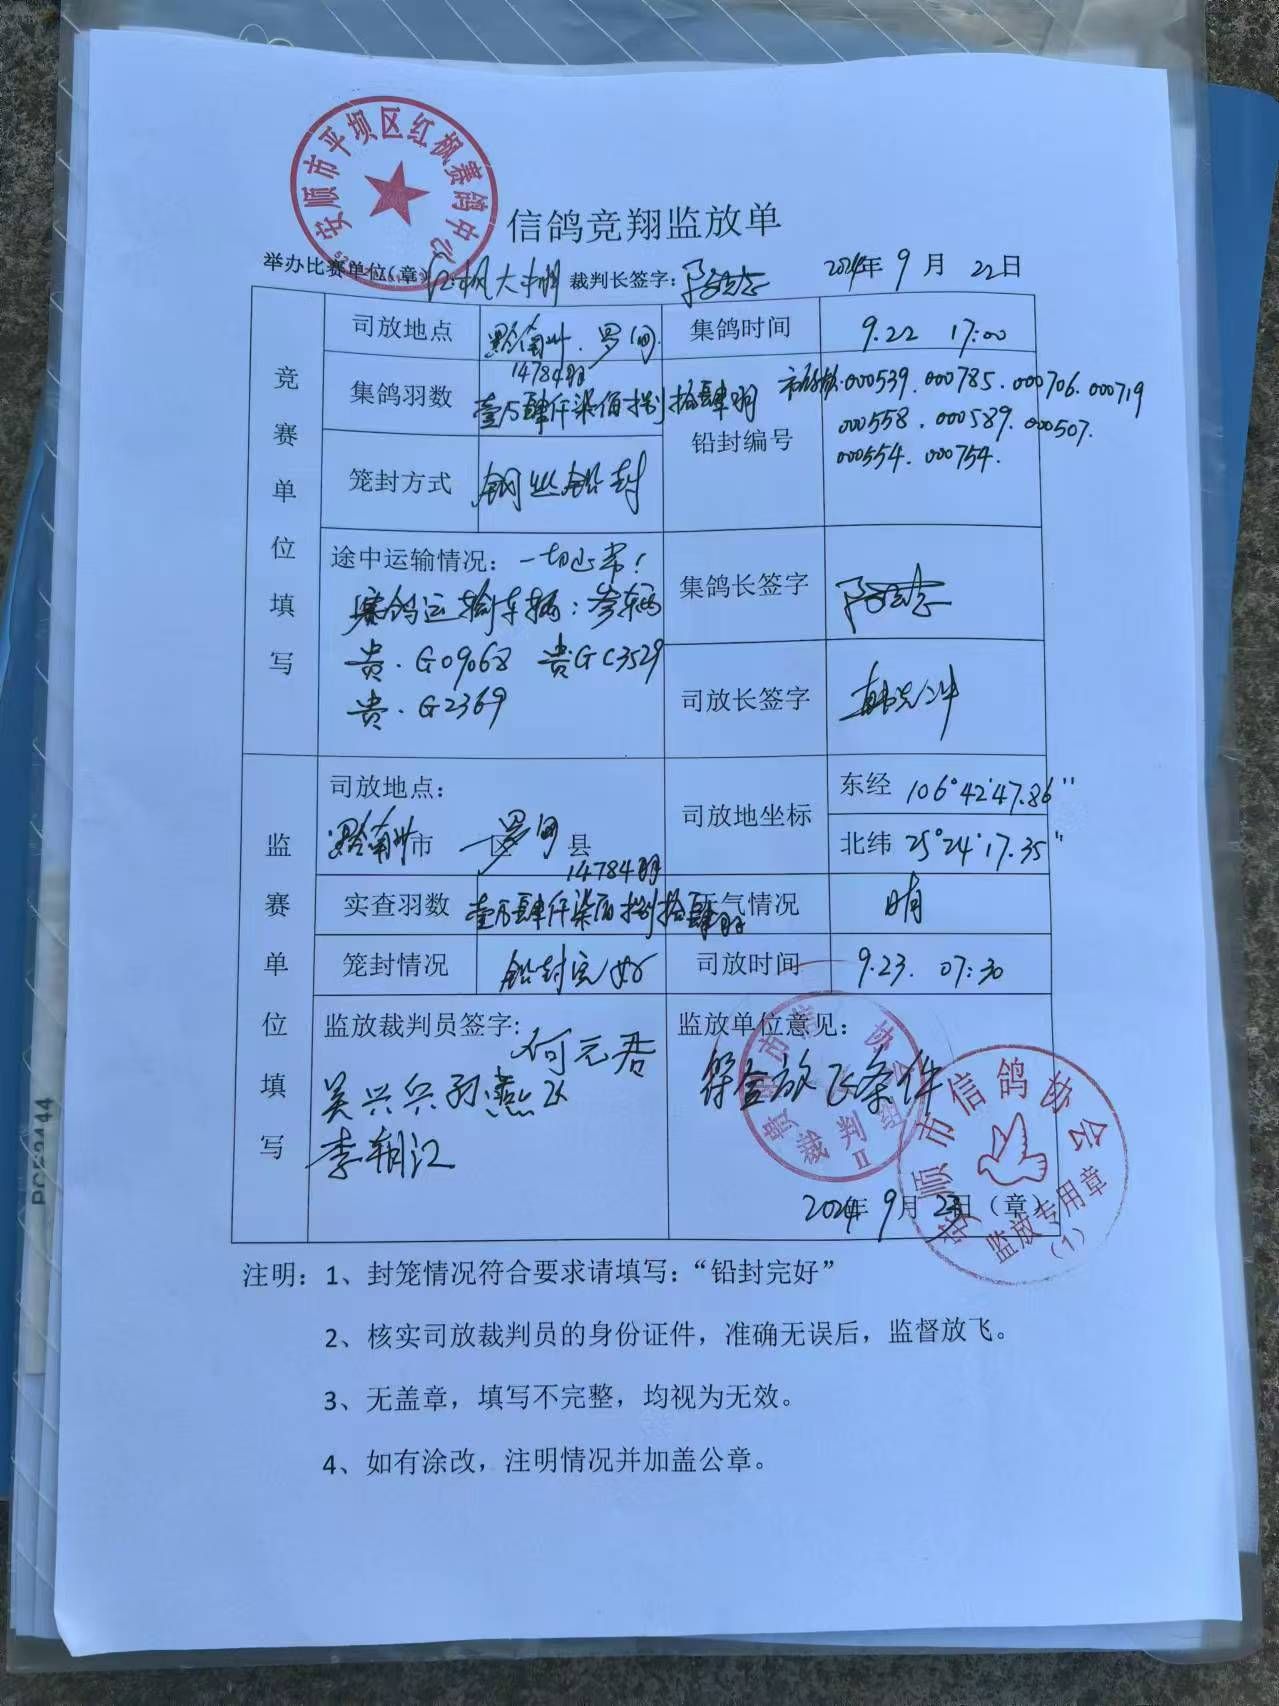 安顺市平坝区红枫赛鸽中心
信鸽竞翔监放单
举办比赛单位(章) 红枫大棚 裁判长签字: 2024年 9 月 22日
竞赛单位填写
司放地点 黔南州.罗甸. 集鸽时间 9.22 17:00
集鸽羽数 14784羽 壹万肆仟柒佰捌拾肆羽
铅封编号 000539.000785.000706.000719
000558.000589.000507.
000554.000754.
笼封方式 钢丝铅封
途中运输情况: 一切正常! 集鸽长签字
赛鸽运输车辆: 叁辆
贵.G09068 贵GC3529
贵.G2369
司放长签字
监赛单位填写
司放地点: 黔南州市 区 罗甸 县
司放地坐标 东经 106°42'47.86"
北纬 25°24'17.35"
实查羽数 14784羽 壹万肆仟柒佰捌拾肆羽 天气情况 晴
笼封情况 铅封完好 司放时间 9.23. 07:30
监放裁判员签字: 何元君
吴兴兵 孙燕飞
李朝江
监放单位意见:
符合放飞条件
协 裁判组 II
安顺市信鸽协会 监放专用章 (1)
2024年 9月 23日(章)
注明: 1、封笼情况符合要求请填写: “铅封完好”
2、核实司放裁判员的身份证件，准确无误后，监督放飞。
3、无盖章，填写不完整，均视为无效。
4、如有涂改，注明情况并加盖公章。